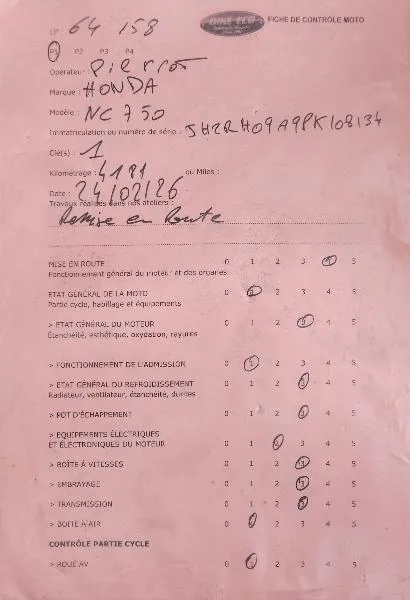 LP 64 158
BIKE ECO FICHE DE CONTRÔLE MOTO
P1 P2 P3 P4
Opérateur: Pierrot
Marque : HONDA
Modèle : NC 750
Immatriculation ou numéro de série : JH2RH09A9PK108134
Clé(s) : 1
Kilométrage : 4181 ou Miles :
Date : 24/02/26
Travaux réalisés dans nos ateliers :
Remise en Route
MISE EN ROUTE 0 1 2 3 4 5
Fonctionnement général du moteur et des organes
ETAT GÉNÉRAL DE LA MOTO 0 1 2 3 4 5
Partie cycle, habillage et équipements
> ETAT GÉNÉRAL DU MOTEUR 0 1 2 3 4 5
Étanchéité, esthétique, oxydation, rayures
> FONCTIONNEMENT DE L'ADMISSION 0 1 2 3 4 5
> ETAT GÉNÉRAL DU REFROIDISSEMENT 0 1 2 3 4 5
Radiateur, ventilateur, étanchéité, durites
> POT D'ÉCHAPPEMENT 0 1 2 3 4 5
> EQUIPEMENTS ÉLECTRIQUES
ET ÉLECTRONIQUES DU MOTEUR 0 1 2 3 4 5
> BOÎTE À VITESSES 0 1 2 3 4 5
> EMBRAYAGE 0 1 2 3 4 5
> TRANSMISSION 0 1 2 3 4 5
> BOITE À AIR 0 1 2 3 4 5
CONTRÔLE PARTIE CYCLE
> ROUE AV 0 1 2 3 4 5